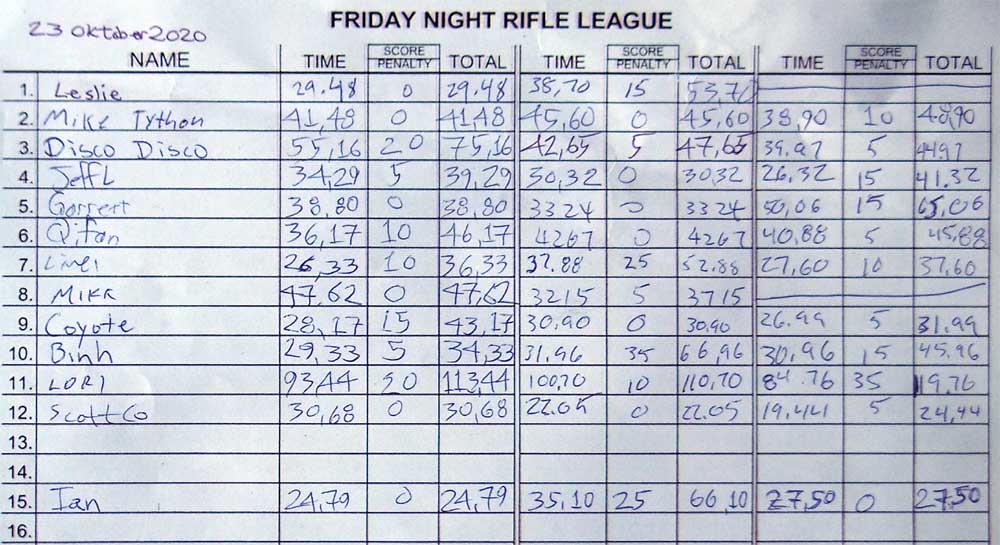 23 Oktober 2020
FRIDAY NIGHT RIFLE LEAGUE
NAME TIME SCORE PENALTY TOTAL TIME SCORE PENALTY TOTAL TIME SCORE PENALTY TOTAL
1. Leslie 29.48 0 29.48 38,70 15 53,70
2. Mike Tython 41,48 0 41,48 45,60 0 45,60 38,90 10 48,90
3. Disco Disco 55,16 20 75,16 42,65 5 47,65 39.97 5 44.97
4. JeffL 34,29 5 39,29 30,32 0 30,32 26,32 15 41.32
5. 38,80 0 38,80 33 24 0 33 24 50,06 15 65,06
6. Qifan 36,17 10 46,17 4267 0 4267 40.88 5 45,88
7. 26,33 10 36,33 25 27,60 10 37,60
8. 47.62 0 47,62 3215 5 3715
9. Coyote 28,17 15 43,17 30,90 0 30,90 26.99 5 31.99
10. Binh 29,33 5 34,33 31.96 35 66,96 30,96 15 45.96
11. LORI 9344 20 11344 100,70 10 110,70 84.76 35 119.76
12. ScottCo 30,68 0 30,68 22.05 0 22.05 19.44 5 24,44
13.
14.
15. Ian 24,79 0 24,79 35,10 25 60,10 27,50 0 27,50
16.